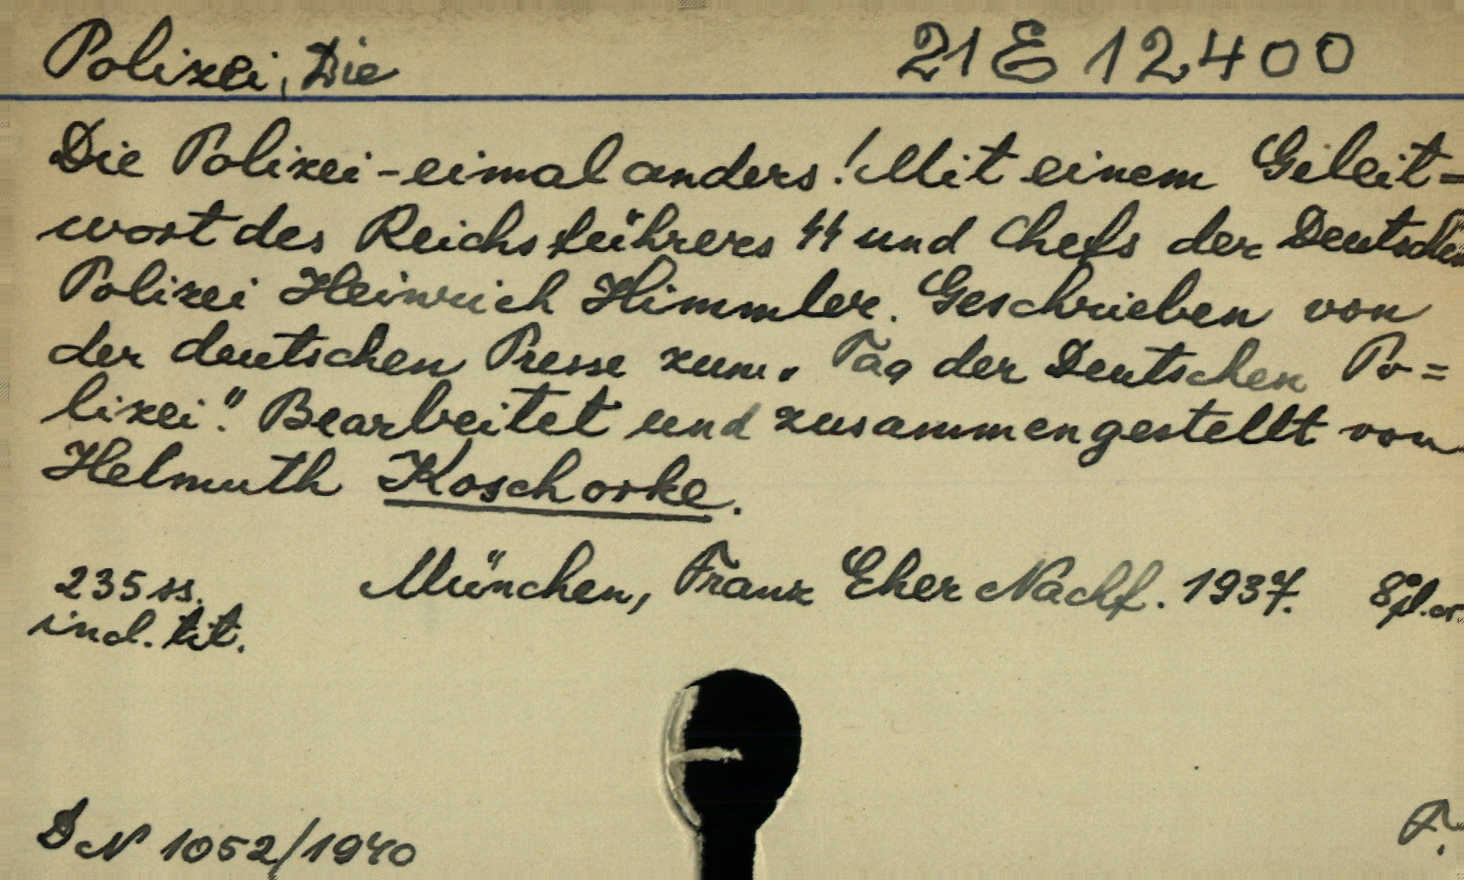 Polizei, Die 21 E 12400
Die Polizei - eimal anders! Mit einem Geleit=
wort des Reichsführers SS und Chefs der Deutschen
Polizei Heinrich Himmler. Geschrieben von
der deutschen Presse zum „Tag der Deutschen Po=
lizei". Bearbeitet und zusammengestellt von
Helmuth Koschorke.
235 ss. München, Franz Eher Nachf. 1937. 8°
incl. tit.
DN 1052/1940